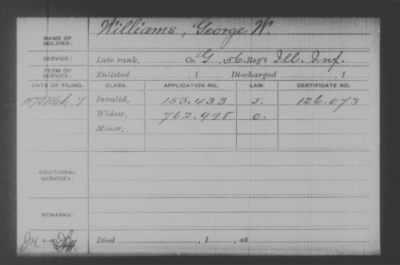 NAME OF SOLDIER: Williams, George W.
SERVICE: Late rank, Co. G, 56 Reg't Ill. Inf.
TERM OF SERVICE: Enlisted , 1 Discharged , 1
DATE OF FILING. CLASS. APPLICATION NO. LAW. CERTIFICATE NO.
Invalid, 153.433 126.073
Widow, 762.998
Minor,
ADDITIONAL SERVICES:
REMARKS:
Died , 1 , at